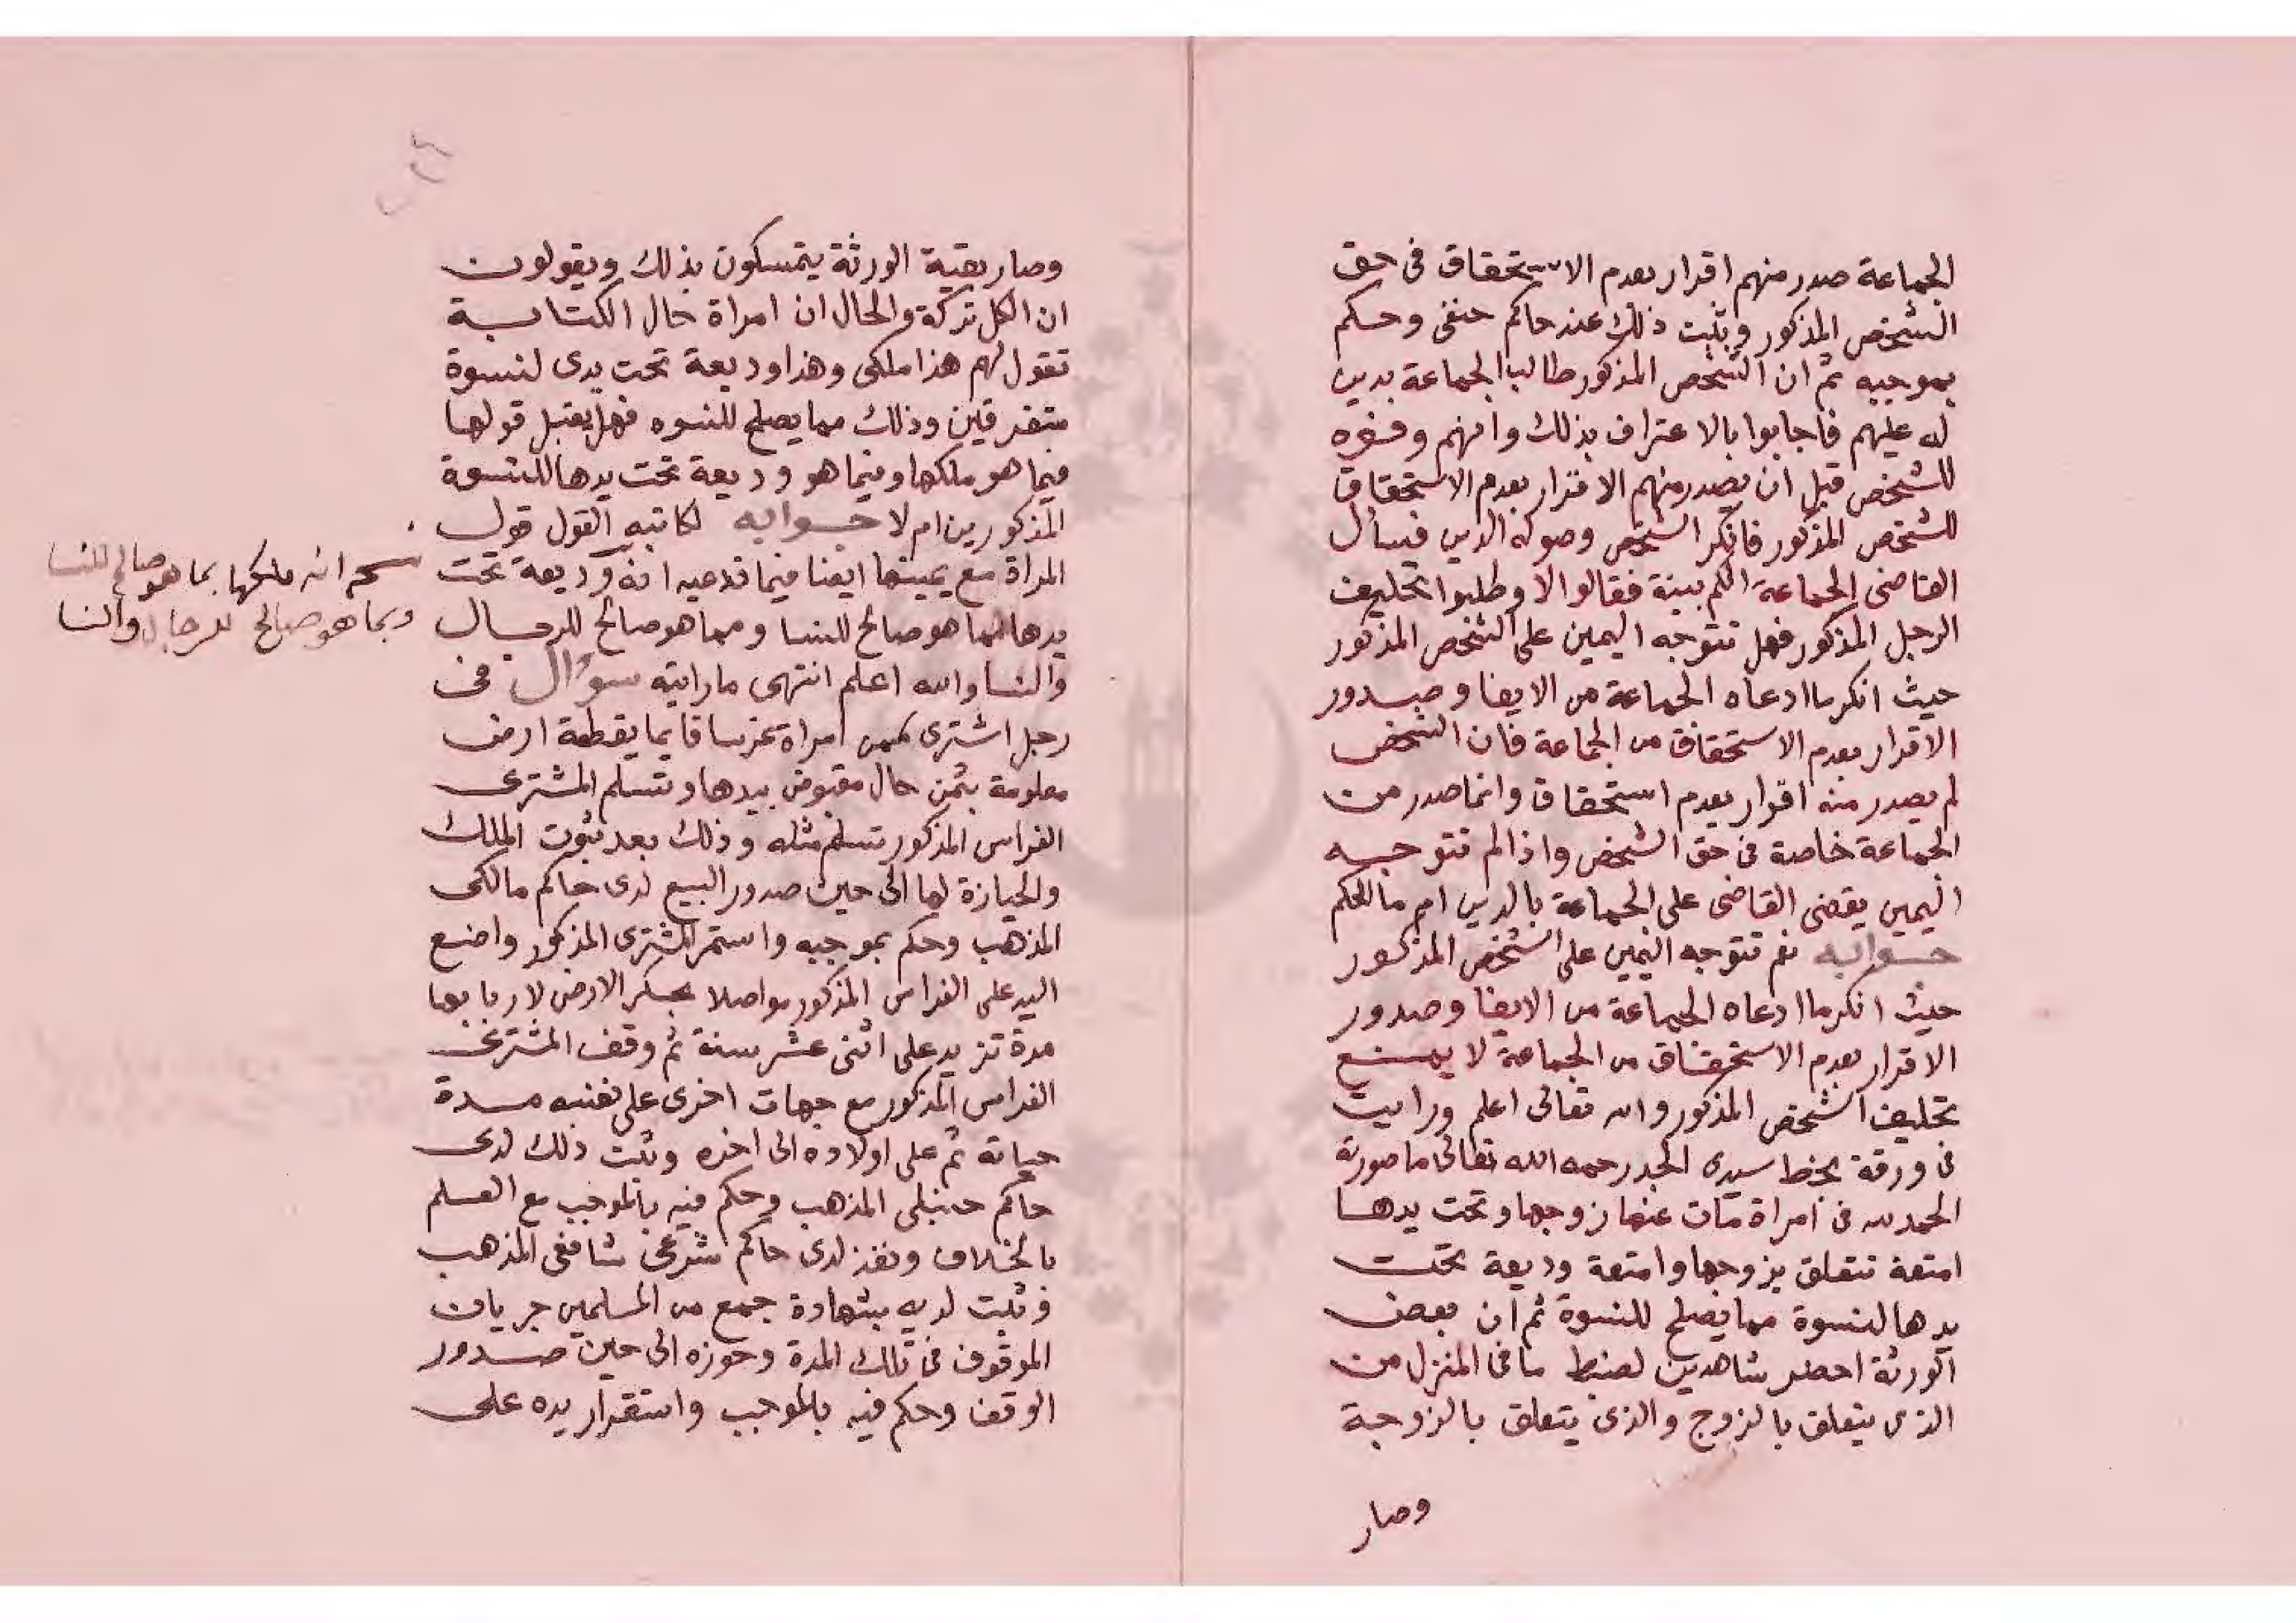 الجماعة صدر منهم اقرار بعدم الاستحقاق فى حق
الشخص المذكور وثبت ذلك عند حاكم حنفى وحكم
بموجبه ثم ان الشخص المذكور طالب الجماعة بدين
له عليهم فاجابوا بالاعتراف بذلك وانهم وفوه
للشخص قبل ان يصدر منهم الاقرار بعدم الاستحقاق
للشخص المذكور فانكر الشخص وصوله الدين فيسأل
القاضى الجماعة الكم بينة فقالوا لا وطلبوا تحليف
الرجل المذكور فهل تتوجه اليمين على الشخص المذكور
حيث انكر ما ادعاه الجماعة من الايفا وصدور
الاقرار بعدم الاستحقاق من الجماعة فان الشخص
لم يصدر منه اقرار بعدم استحقاق وانما صدر من
الجماعة خاصة فى حق الشخص واذا لم تتوجه
اليمين يقضى القاضى على الجماعة بالدين ام ما الحكم
جوابه نعم تتوجه اليمين على الشخص المذكور
حيث انكر ما ادعاه الجماعة من الايفا وصدور
الاقرار بعدم الاستحقاق من الجماعة لا يمنع
تحليف الشخص المذكور والله تعالى اعلم ورايت
فى ورقة بخط سيدى الجد رحمه الله تعالى ما صورته
الحمد لله فى امراة مات عنها زوجها وتحت يدها
امتعة تتعلق بزوجها وامتعة وديعة تحت
يدها لنسوة مما يصلح للنسوة ثم ان بعض
الورثة احضر شاهدين لضبط ما فى المنزل من
الذى يتعلق بالزوج والذى يتعلق بالزوجة
وصار
وصار بقية الورثة يتمسكون بذلك ويقولون
ان الكل تركة والحال ان امراة حال الكتابة
تقول لهم هذا ملكى وهذا وديعة تحت يدى لنسوة
متفرقين وذلك مما يصلح للنسوه فهل يقبل قولها
فيما هو ملكها وفيما هو وديعة تحت يدها للنسوة
المذكورين ام لا جوابه لكاتبه القول قول
المراة مع يمينها ايضا فيما تدعيه انه وديعة تحت
يدها مما هو صالح للنسا ومما هو صالح للرجال
والنسا والله اعلم انتهى ما رايته سؤال فى
رجل اشترى من امراة غراسا قايما بقطعة ارض
معلومة بثمن حال مقبوض بيدها وتسلم المشترى
الغراس المذكور تسلم مثله وذلك بعد ثبوت الملك
والحيازة لها الى حين صدور البيع لدى حاكم مالكى
المذهب وحكم بموجبه واستمر المشترى المذكور واضع
اليد على الغراس المذكور مواصلا بحكر الارض لاربابها
مدة تزيد على اثنى عشر سنة ثم وقف المشترى
الغراس المذكور مع جهات اخرى على نفسه مدة
حياته ثم على اولاده الى اخره وثبت ذلك لدى
حاكم حنبلى المذهب وحكم فيه بالموجب مع العلم
بالخلاف ونفذ لدى حاكم شرعى شافعى المذهب
وثبت لديه بشهادة جمع من المسلمين جريان
الموقوف فى تلك المدة وحوزه الى حين صدور
الوقف وحكم فيه بالموجب واستقرار يده على
انه ملكها بما هو صالح للنسا
وبما هو صالح للرجال والنسا